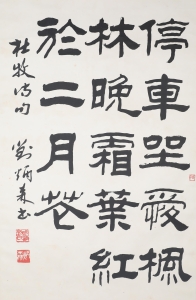 停車坐愛楓
林晚霜葉紅
於二月花
杜牧詩句
劉炳森書